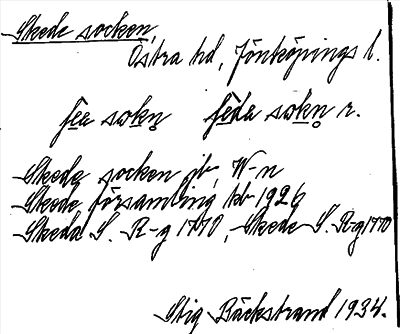 Skede socken,
Östra hd, Jönköpings l.
ʃee sokn ʃeda sokn r.
Skede socken jb, W-n
Skede församling kb 1926
Skeda S. R-g 1770, Skede S. R-g 1770
Stig Bäckstrand 1934.